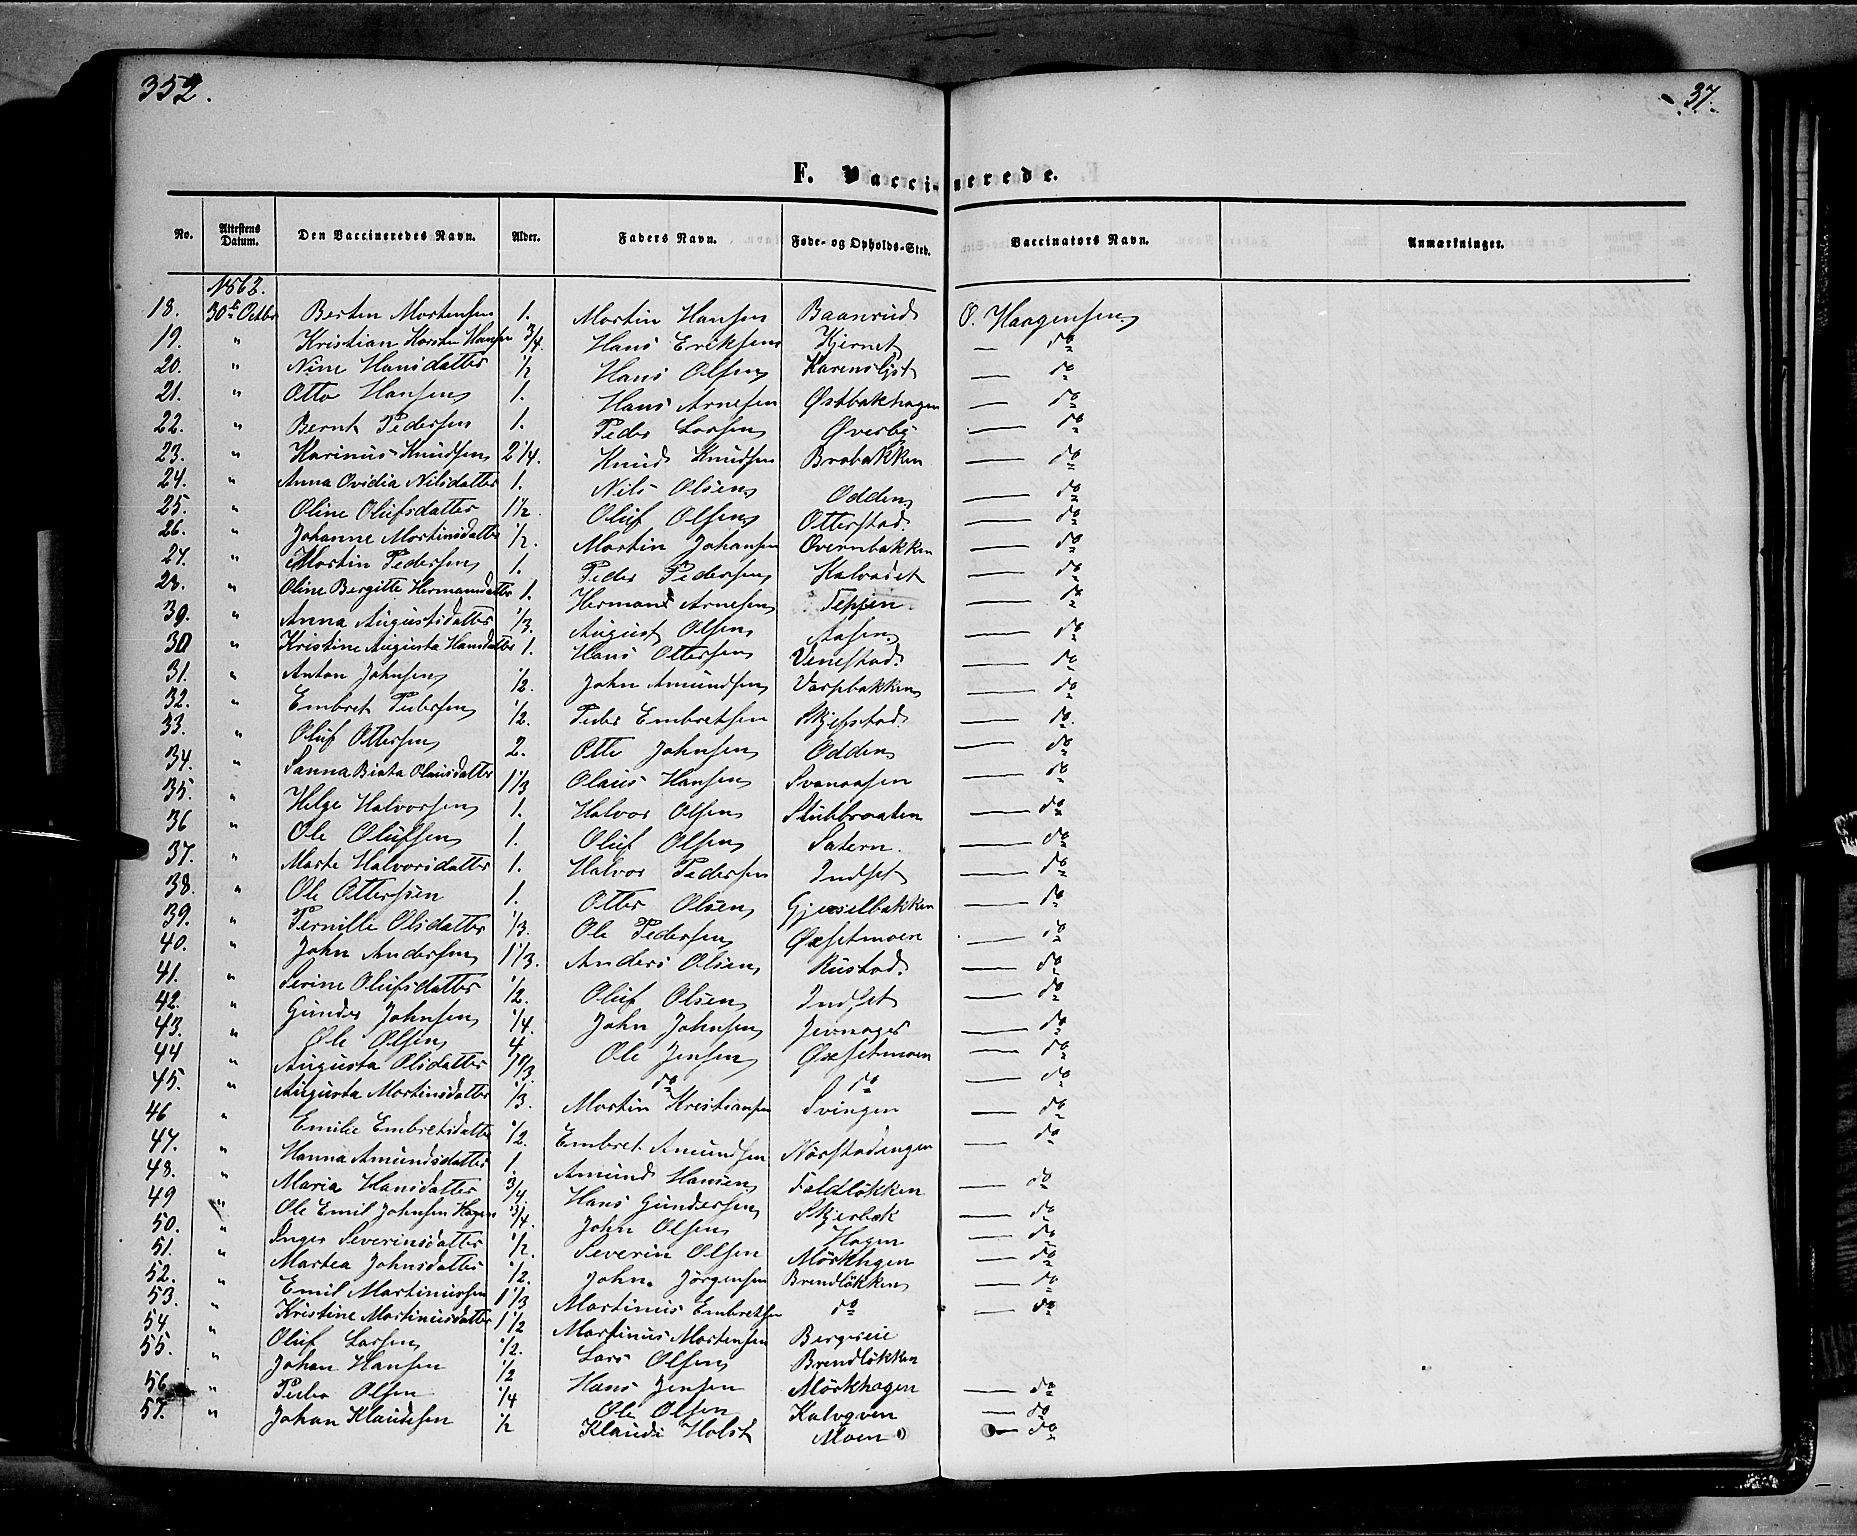 352.
37.
F. Vaccinerede.
No. Attestens Datum. Den Vaccineredes Navn. Alder. Faders Navn. Føde- og Opholds-Sted. Vaccinators Navn. Anmærkninger.
1862.
18. 30te Octbr Berten Mortensen 1. Martin Hansen Baanrud O. Haagensen
19. " Kristian Karsten Hansen 3/4. Hans Eriksen Kjernet — do
20. " Nine Hansdatter 1/2 Hans Olsen Karenslyst — do
21. " Otto Hansen 1. Hans Arnesen Østbakhagen — do
22. " Bernt Pedersen 1. Peder Larsen Øverby — do
23. " Karinus Knudsen 2 1/4. Knud Knudsen Brobakken — do
24. " Anna Ovidia Nilsdatter 1. Nils Olsen Odden — do
25. " Oline Olufsdatter 1 1/2. Oluf Olsen Otterstad — do
26. " Johanne Martinsdatter 1/2. Martin Johansen Overnbakken — do
27. " Martin Pedersen 1. Peder Pedersen Kalvaset — do
28. " Oline Bergitte Hermansdatter 1. Herman Arnesen Teppen — do
39. " Anna Augustsdatter 1/3. August Olsen Aasen — do
30 " Kristine Augusta Hansdatter 1. Hans Ottersen Venestad — do
31. " Anton Johnsen 1/2. John Amundsen Varpbakken — do
32. " Embret Pedersen 1/2. Peder Embretsen Skjefstad — do.
33. " Oluf Ottersen 2. Otte Johnsen Odden — do
34. " Sanna Beata Olausdatter 1 1/3 Olaus Hansen Svenaasen — do
35. " Helge Halvorsen 1. Halvor Olsen Stubbraaten — do
36 " Ole Olufsen 1. Oluf Olsen Satern. — do
37. " Marte Halvorsdatter 1. Halvor Pedersen Indset — do
38. " Ole Ottersen 1. Otter Olsen Gjeselbakken — do
39. " Pernille Olsdatter 1/3. Ole Pedersen Øxsetmoen — do
40. " John Andersen 1 1/3. Anders Olsen Rustad — do
41. " Serine Olufsdatter 1/2. Oluf Olsen Indset — do
42. " Gunder Johnsen 1/4. John Johnsen Jevnager — do
43. " Ole Olsen 4 Ole Jensen Øxsetmoen — do
44 " Augusta Olsdatter do do — do
45. " Augusta Martinsdatter 1/3. Martin Kristiansen Svingen — do
46 " Emilie Embretsdatter 1/2. Embret Amundsen Norstadengen — do
47. " Hanna Amundsdatter 1. Amund Hansen Faldløkken — do
48. " Maria Hansdatter 3/4. Hans Gundersen Skjerbek — do
49 " Ole Emil Johnsen Hagen 3/4. John Olsen Hagen — do
50. " Inger Severinsdatter 1/2. Severin Olsen Mörkhagen — do
51. " Martea Johnsdatter 1/2. John Jörgensen Brendlökken — do
52. " Emil Martinussen 1 1/3 Martinus Embretsen do — do
53. " Kristine Martinusdatter 1 1/2 Martinus Mortensen Bergseie
54 " Oluf Larsen 1/2. Lars Olsen Brendlökken
55. " Johan Hansen 1/2 Hans Jensen Mörkhagen — do
56 " Peder Olsen 1/4 Ole Olsen Kalvqven — do
57. " Johan Klaudesen 1/2 Klaude Holst Moen — do